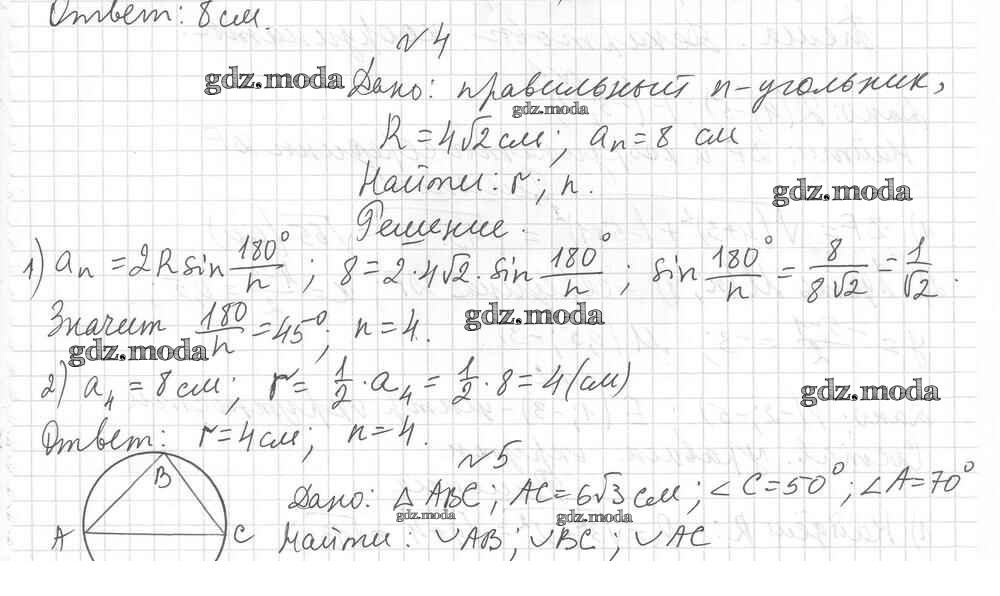 Ответ: 8 см.
№4
gdz.moda Дано: правильный n-угольник,
gdz.moda
R = 4√2 см; aₙ = 8 см
Найти: r; n.
gdz.moda
Решение.
1) aₙ = 2R sin 180°/n; 8 = 2·4√2·sin 180°/n; sin 180°/n = 8/8√2 = 1/√2.
Значит 180/n = 45°; n = 4.
gdz.moda
gdz.moda
2) a₄ = 8 см; r = 1/2·a₄ = 1/2·8 = 4 (см)
gdz.moda
Ответ: r = 4 см; n = 4.
№5
B
Дано: △ABC; AC = 6√3 см; ∠C = 50°; ∠A = 70°
gdz.moda gdz.moda
A C Найти: ◡AB; ◡BC; ◡AC